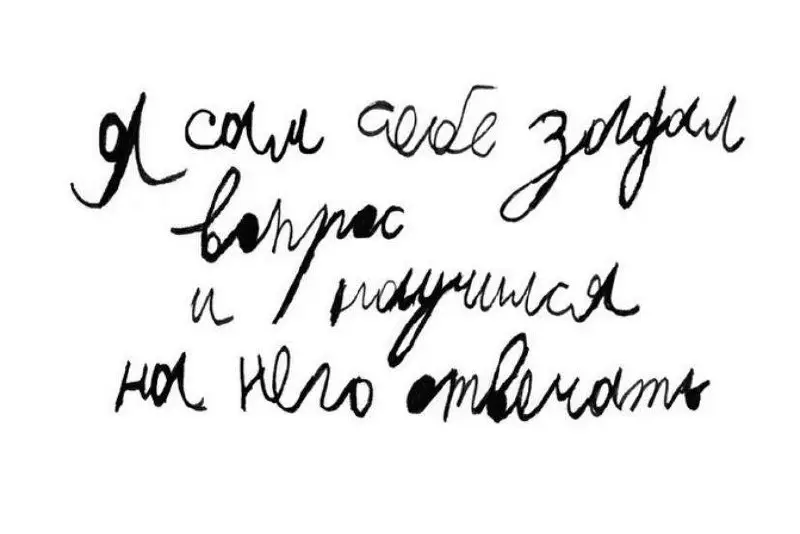 Я сам себе задал
вопрос
и научился
на него отвечать